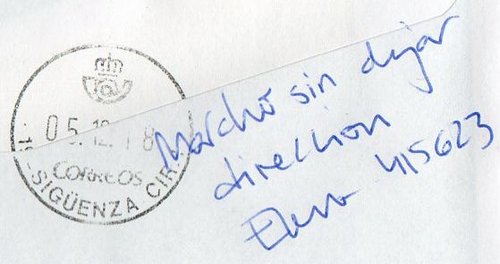 05.12.18
CORREOS
-SIGÜENZA CIR.
Marcho sin dejar
direchion
415623